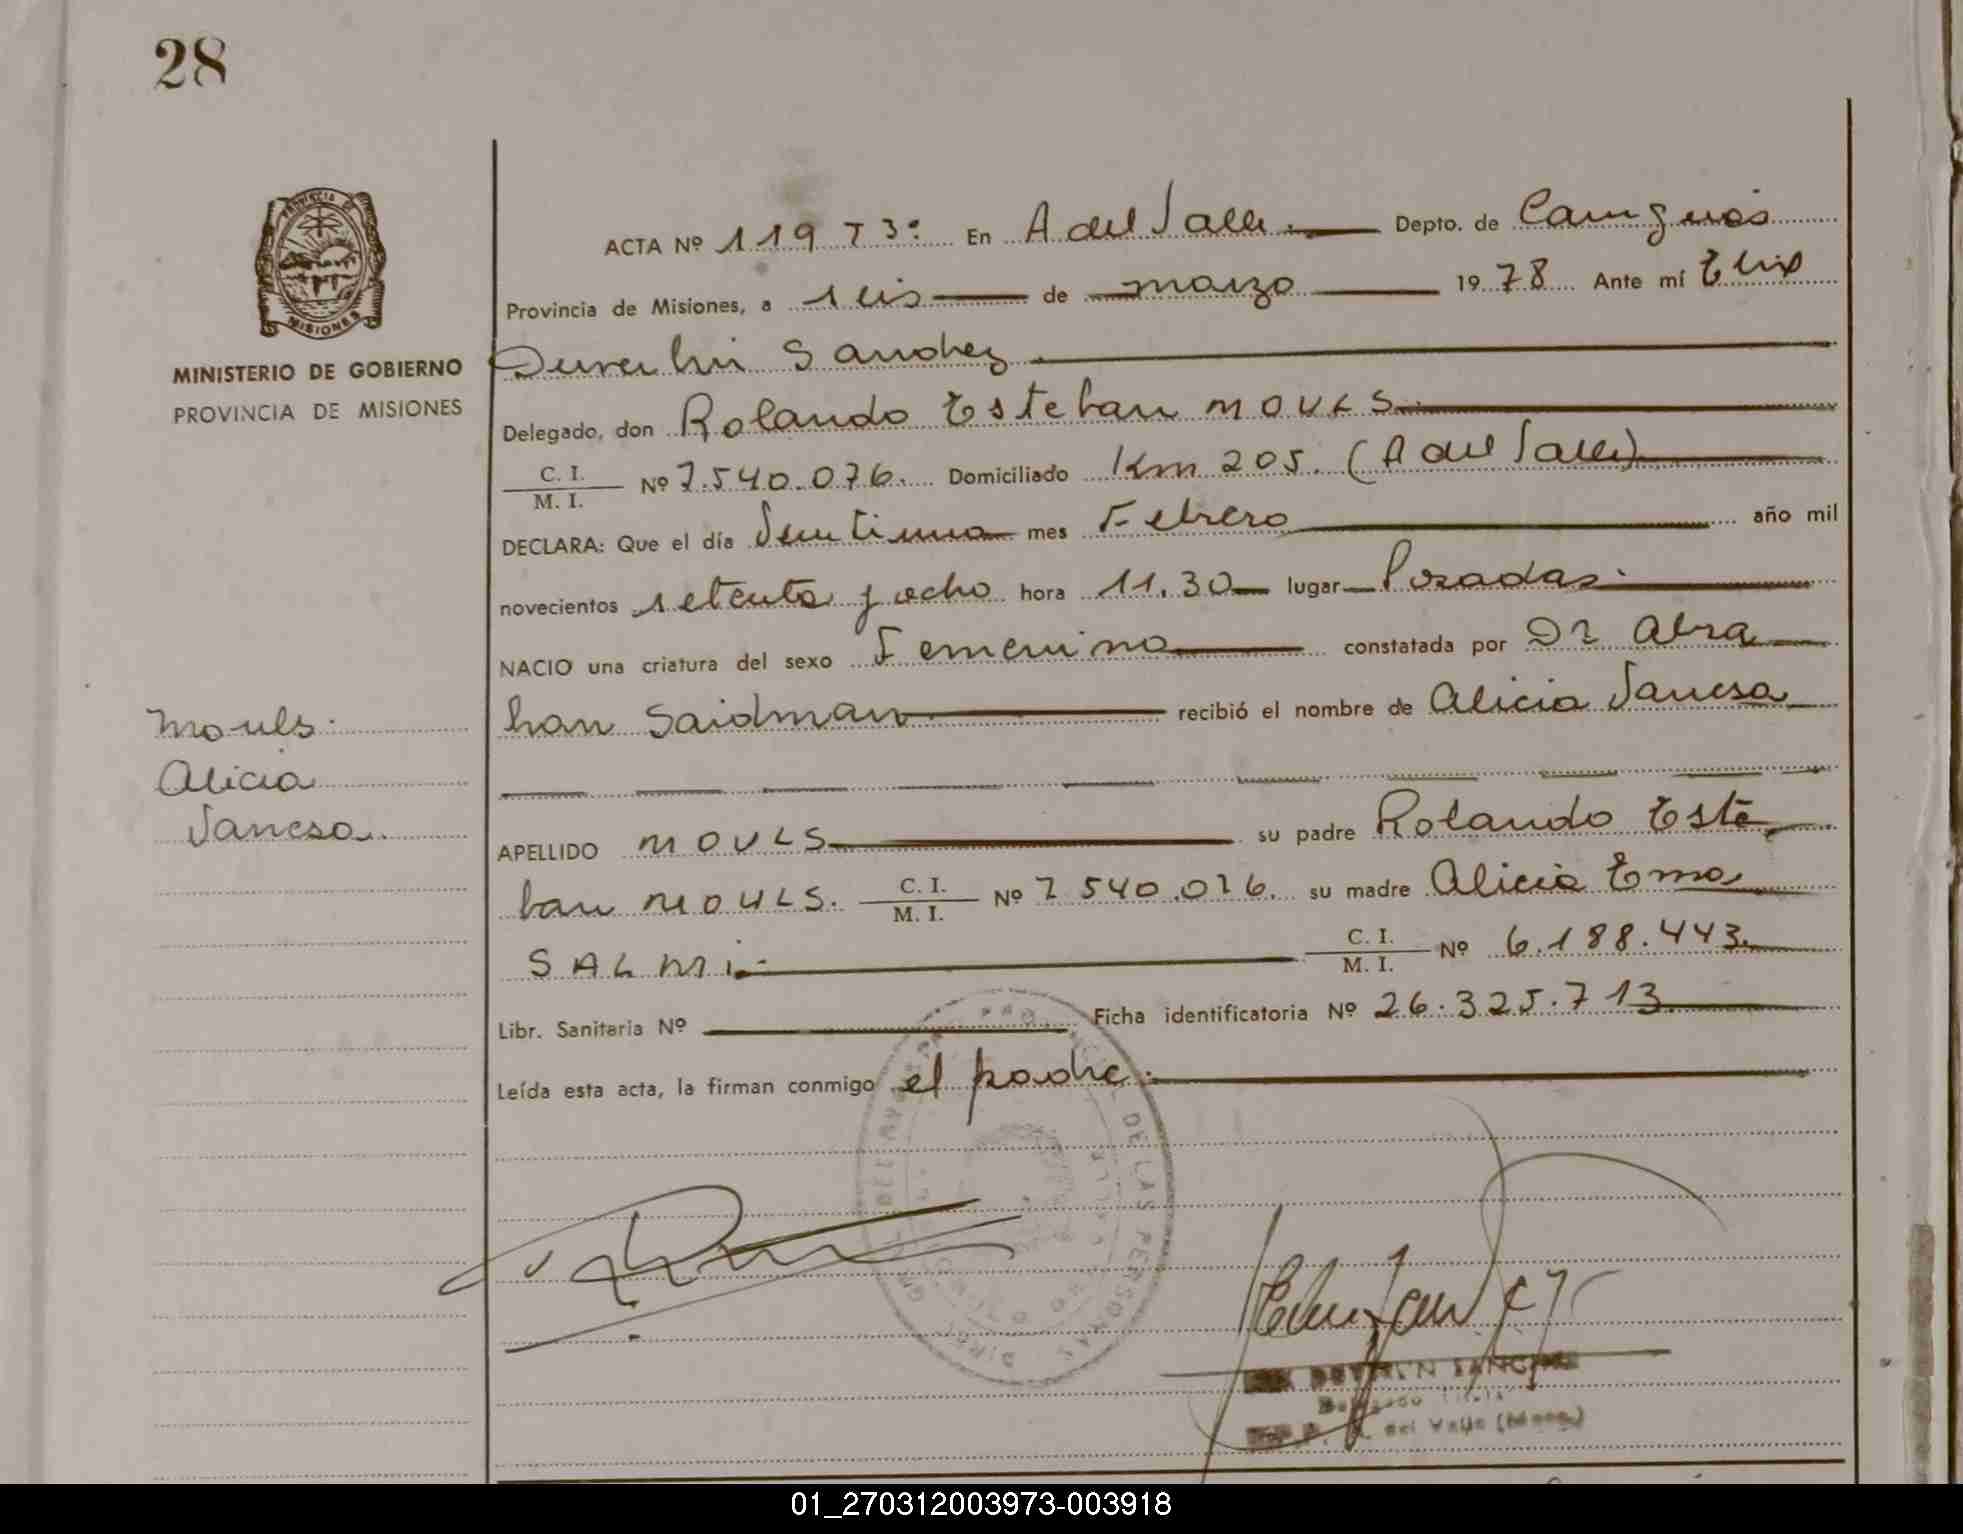 28
PROVINCIA DE
MISIONES
MINISTERIO DE GOBIERNO
PROVINCIA DE MISIONES
ACTA Nº 119 T3º En A del Valle Depto. de Cainguás
Provincia de Misiones, a seis de marzo 1978 Ante mí Elix
Duverlin Sanchez
Delegado, don Rolando Esteban MOULS
C. I.
M. I.
Nº 7.540.076. Domiciliado Km 205. (A del Valle)
DECLARA: Que el día mes Febrero año mil
novecientos setenta y ocho hora 11.30 lugar Posadas.
NACIO una criatura del sexo Femenino constatada por Dr Abra
han Saidman recibió el nombre de Alicia Vanesa
Mouls.
Alicia
Vanesa.
APELLIDO MOULS su padre Rolando Este
ban MOULS. C. I.
M. I.
Nº 7 540.076. su madre Alicia Ema
SALMI. C. I.
M. I.
Nº 6.188.443.
Libr. Sanitaria Nº Ficha identificatoria Nº 26.325.713
Leída esta acta, la firman conmigo el padre.
DE LAS PERSONAS
SANCHEZ
del Valle (Mnes.)
01_270312003973-003918